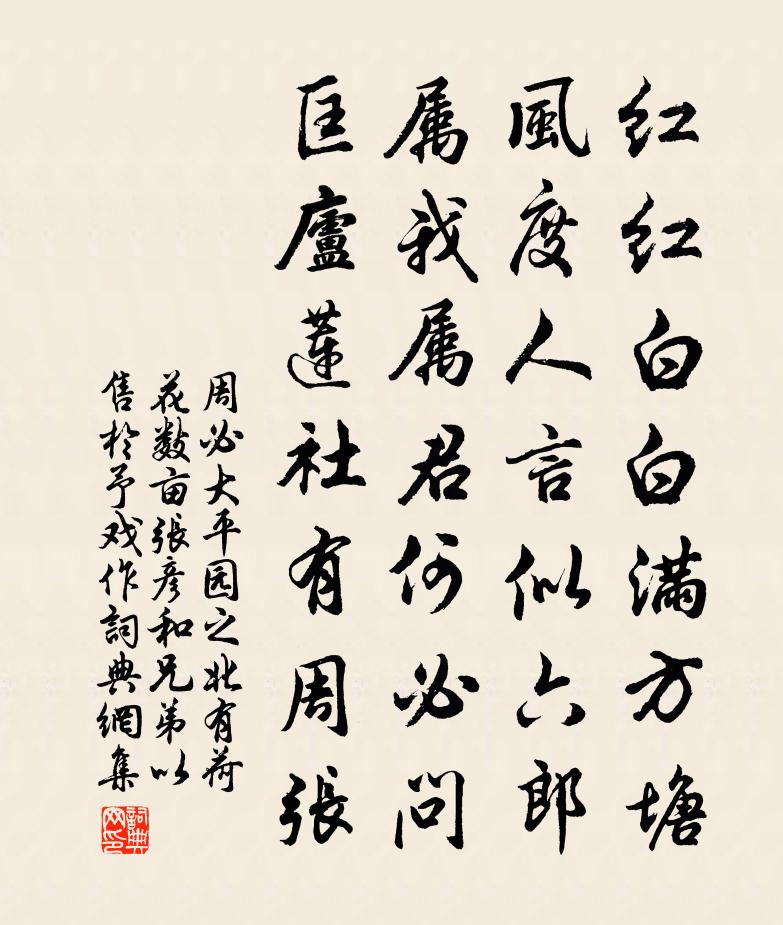 红红白白满方塘
風度人言似六郎
属我属君何必問
匡廬蓮社有周張
周必大平园之北有荷
花数亩張彦和兄弟以
售於予戏作詞典網集
詞典網印